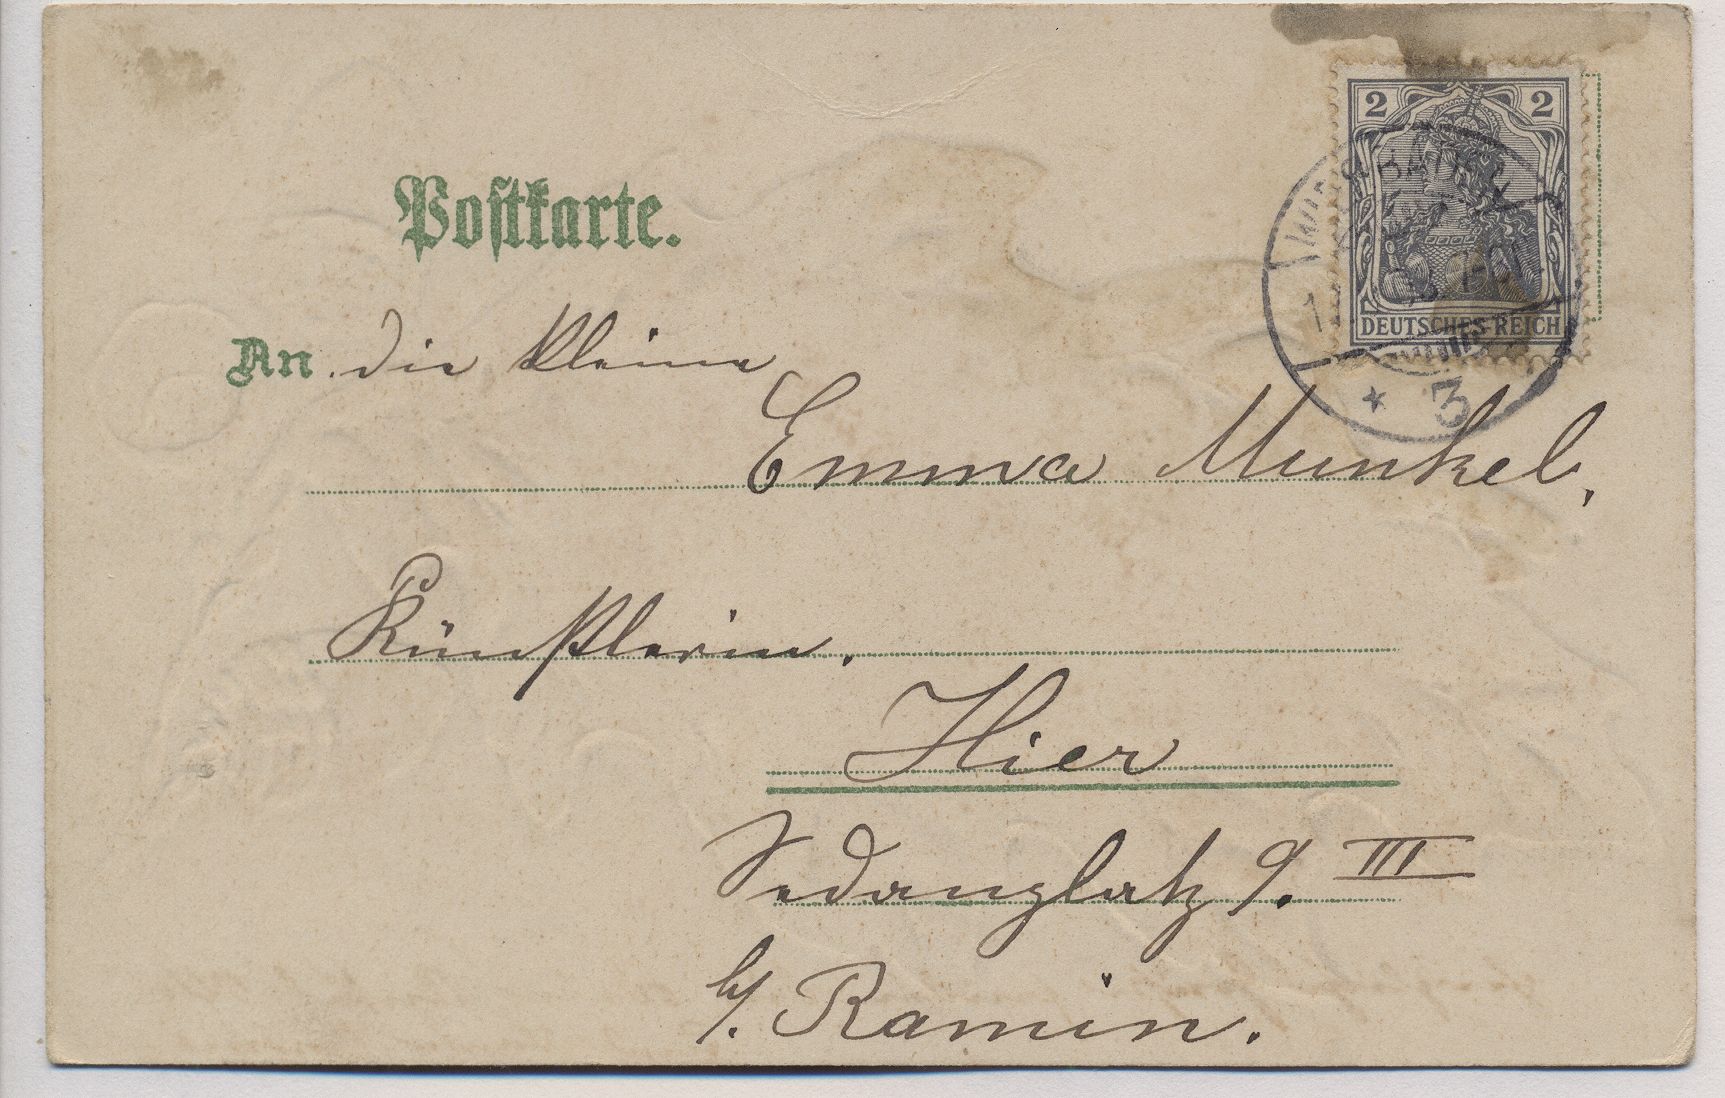 Postkarte.
2 2
DEUTSCHES REICH
* 3
An die kleine
Emma Munkel,
Künstlerin.
Hier
Sedanplatz 9. III
b/. Ramin.